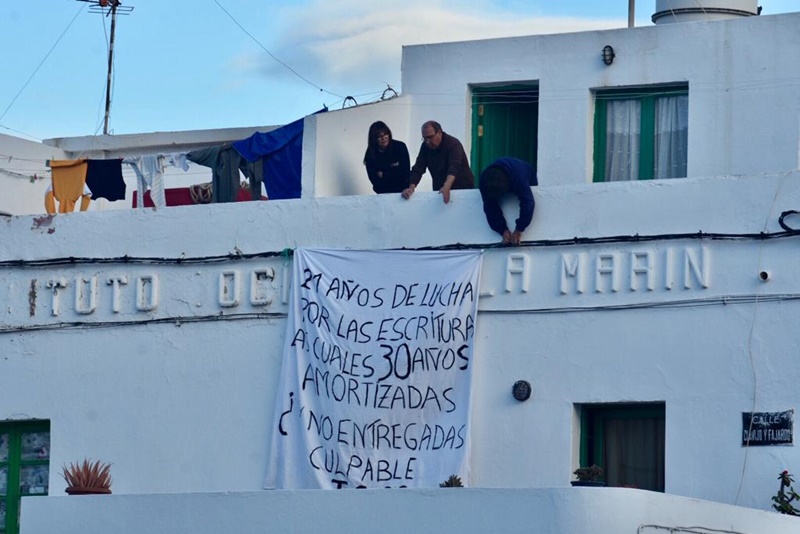 ITUTO OCI LA MARIN
21 AÑOS DE LUCHA
POR LAS ESCRITURA
CUALES 30 AÑOS
AMORTIZADAS
¿Y NO ENTREGADAS
CULPABLE
CALLE
CLAVIJO Y FAJARDO